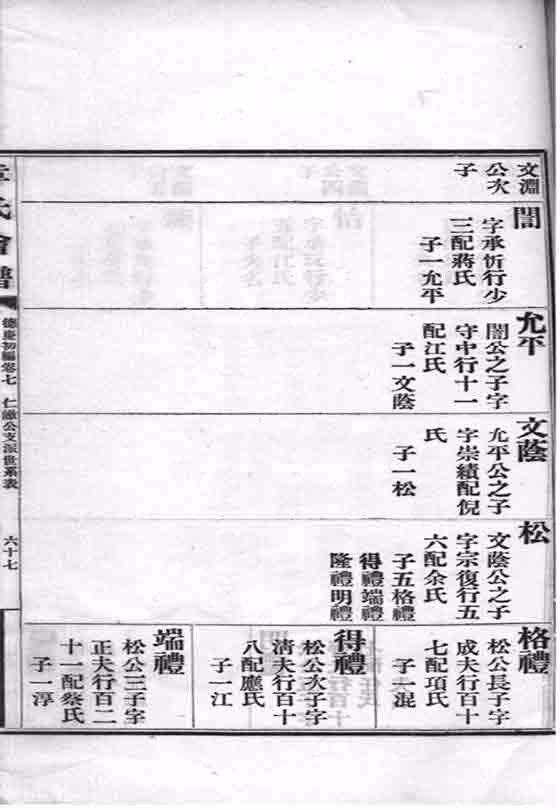 文淵
公次
子
闇
字承忻行少
三配蔣氏
子一允平
允平
闇公之子字
守中行十一
配江氏
子一文蔭
文蔭
允平公之子
字崇績配倪
氏
子一松
松
文蔭公之子
字宗復行五
六配余氏
子五格禮
得禮端禮
隆禮明禮
格禮
松公長子字
成夫行百十
七配項氏
子一混
得禮
松公次子字
清夫行百十
八配應氏
子一江
端禮
松公三子字
正夫行百二
十一配蔡氏
子一淳
章氏會譜
德慶初編卷七
仁徽公支派世系表
六十七